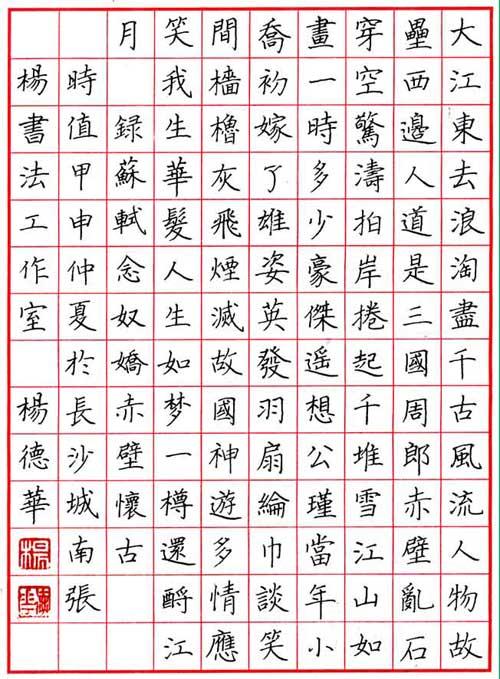 大江東去浪淘盡千古風流人物故
壘西邊人道是三國周郎赤壁亂石
穿空驚濤拍岸捲起千堆雪江山如
畫一時多少豪傑遙想公瑾當年小
喬初嫁了雄姿英發羽扇綸巾談笑
間檣櫓灰飛煙滅故國神遊多情應
笑我生華髮人生如梦一樽還酹江
月 錄蘇軾念奴嬌赤壁懷古
時值甲申仲夏於長沙城南張
楊書法工作室 楊德華